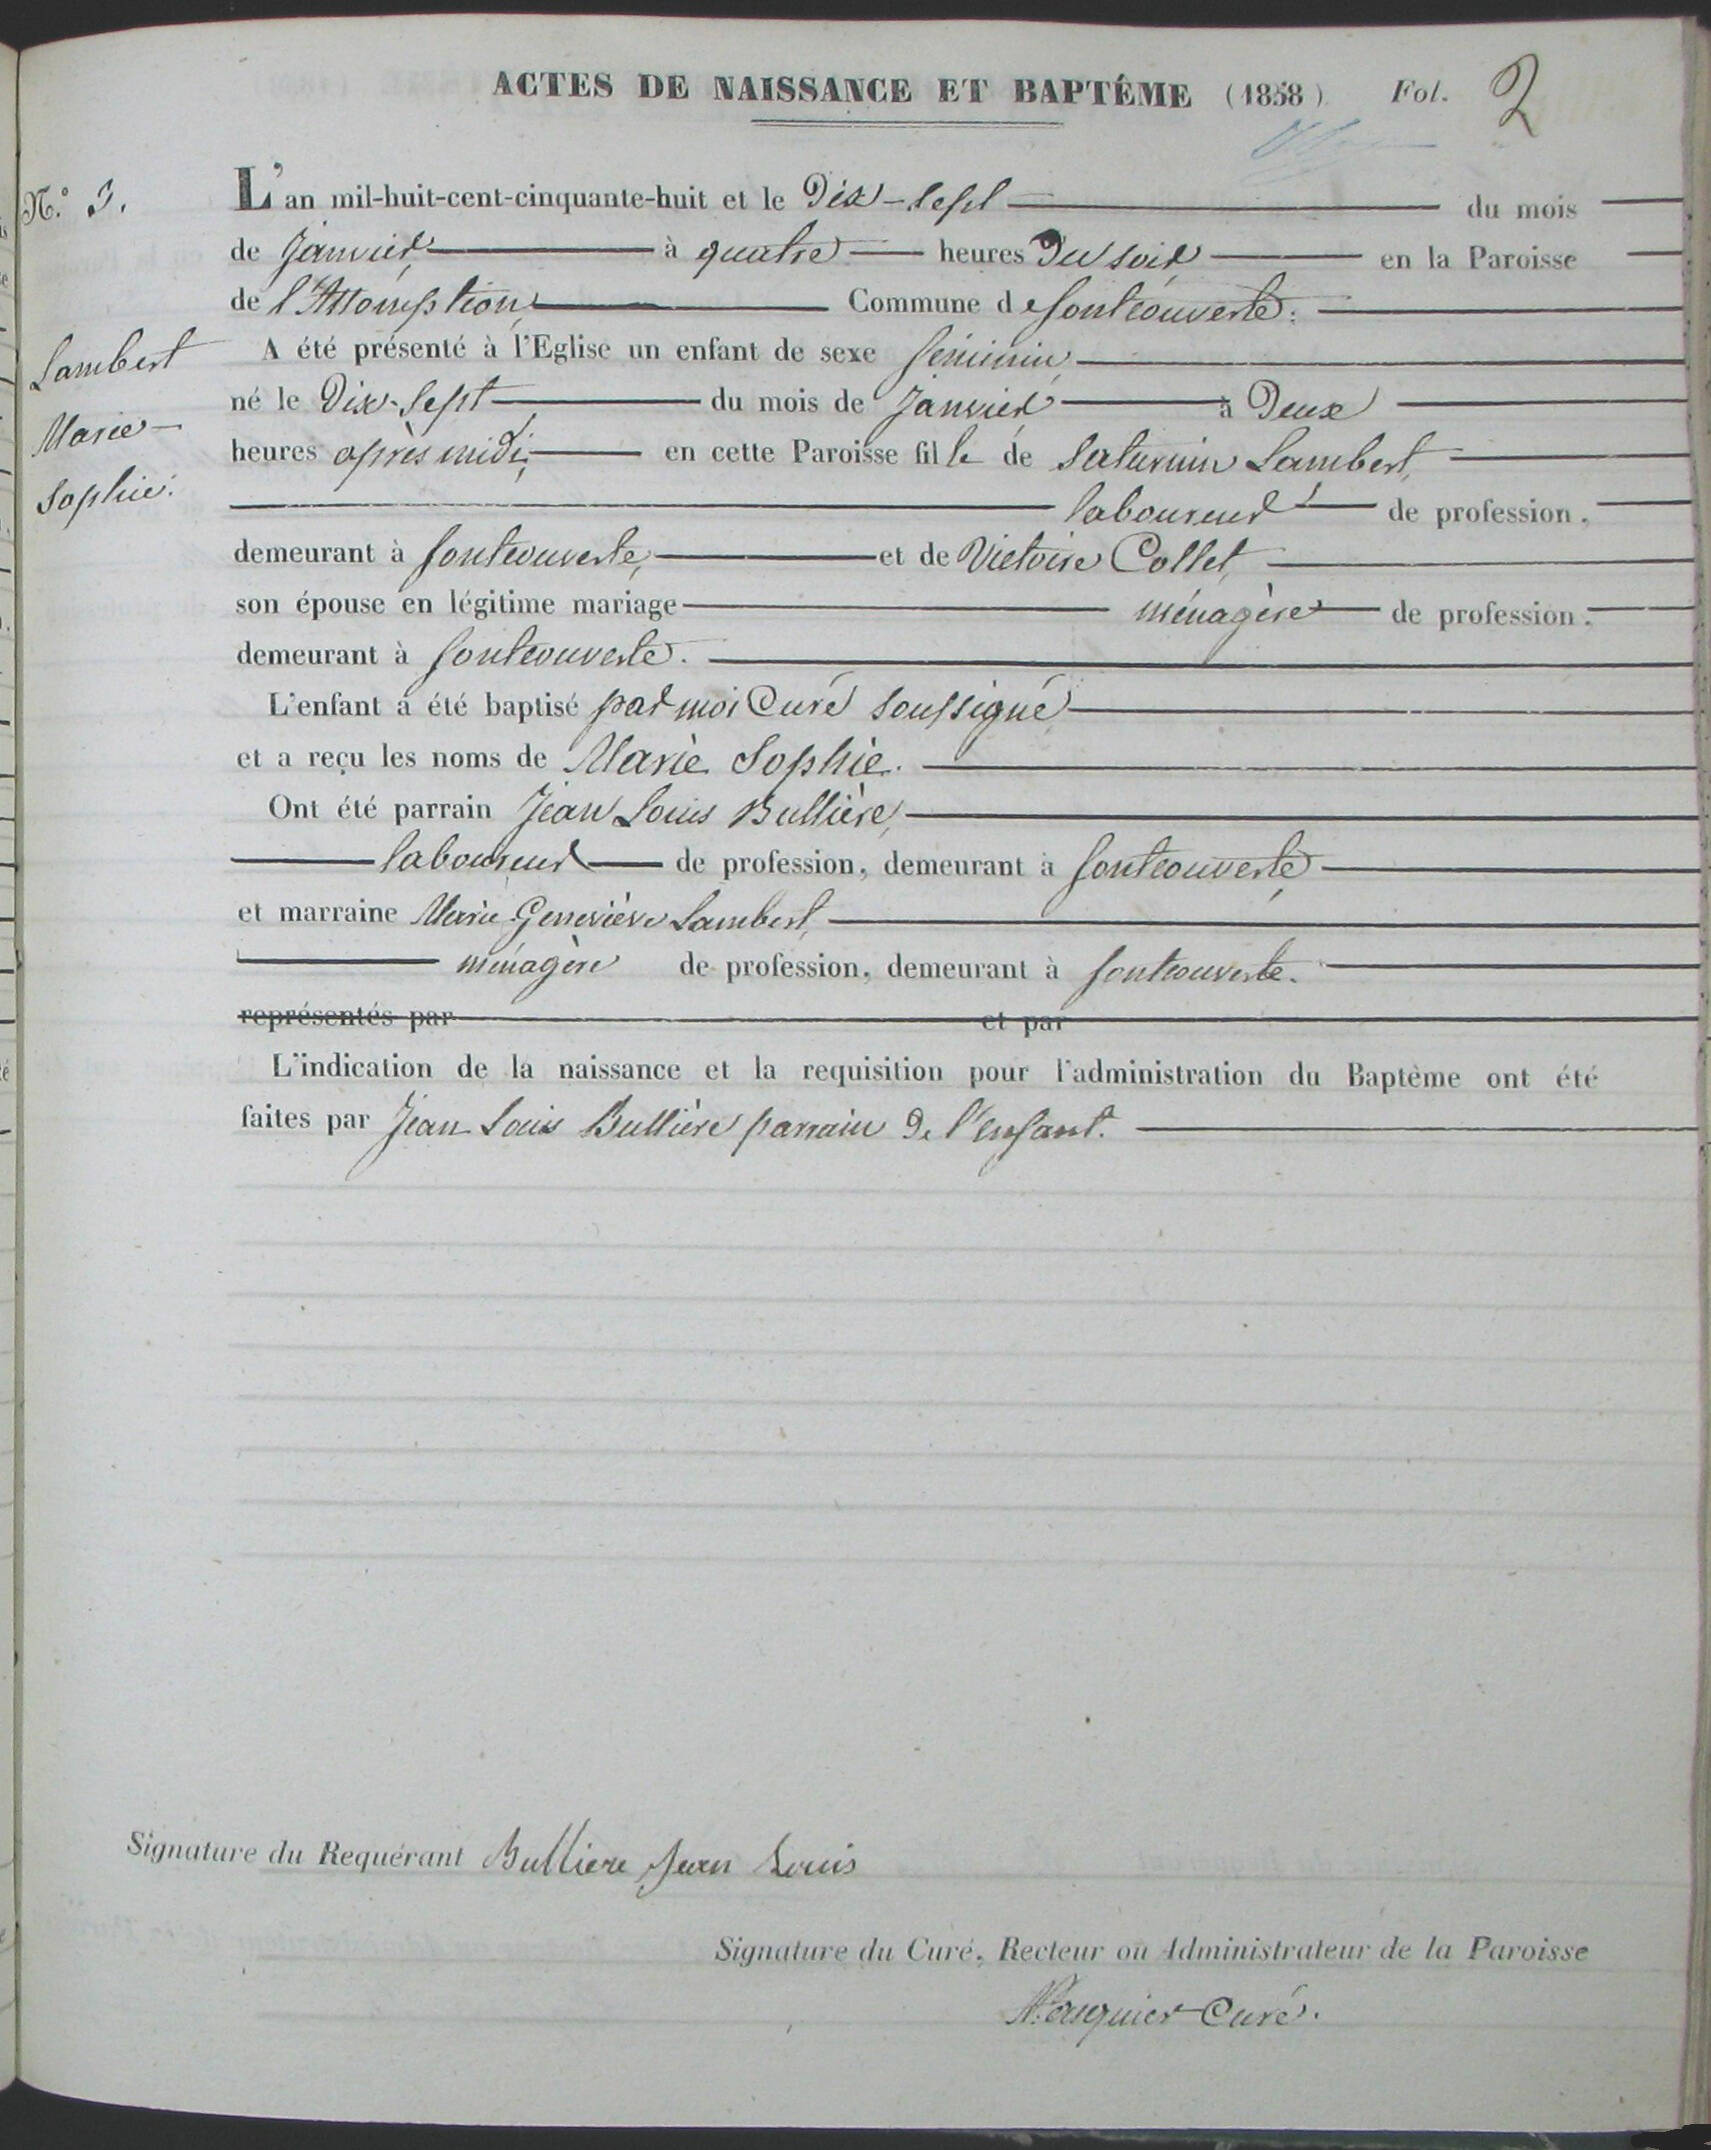 ACTES DE NAISSANCE ET BAPTÉME (1858) Fol. 2
N.o 3.
L'an mil-huit-cent-cinquante-huit et le Dix-sept du mois
de Janvier à quatre heures du soir en la Paroisse
de l'Assomption Commune de fontcouverte.
Lambert
Marie
Sophie.
A été présenté à l'Eglise un enfant de sexe féminin
né le Dix-sept du mois de Janvier à Deux
heures après midi, en cette Paroisse fille de Saturnin Lambert,
laboureur de profession,
demeurant à fontcouverte, et de Victoire Collet,
son épouse en légitime mariage ménagère de profession.
demeurant à fontcouverte.
L'enfant a été baptisé par moi Curé soussigné
et a reçu les noms de Marie Sophie.
Ont été parrain Jean Louis Bullière,
laboureur de profession, demeurant à fontcouverte
et marraine Marie Geneviève Lambert,
ménagère de profession, demeurant à fontcouverte.
représentés par et par
L'indication de la naissance et la requisition pour l'administration du Baptème ont été
faites par Jean Louis Bullière parrain de l'enfant.
Signature du Requérant Bulliere Jean Louis
Signature du Curé, Recteur ou Administrateur de la Paroisse
Curé.